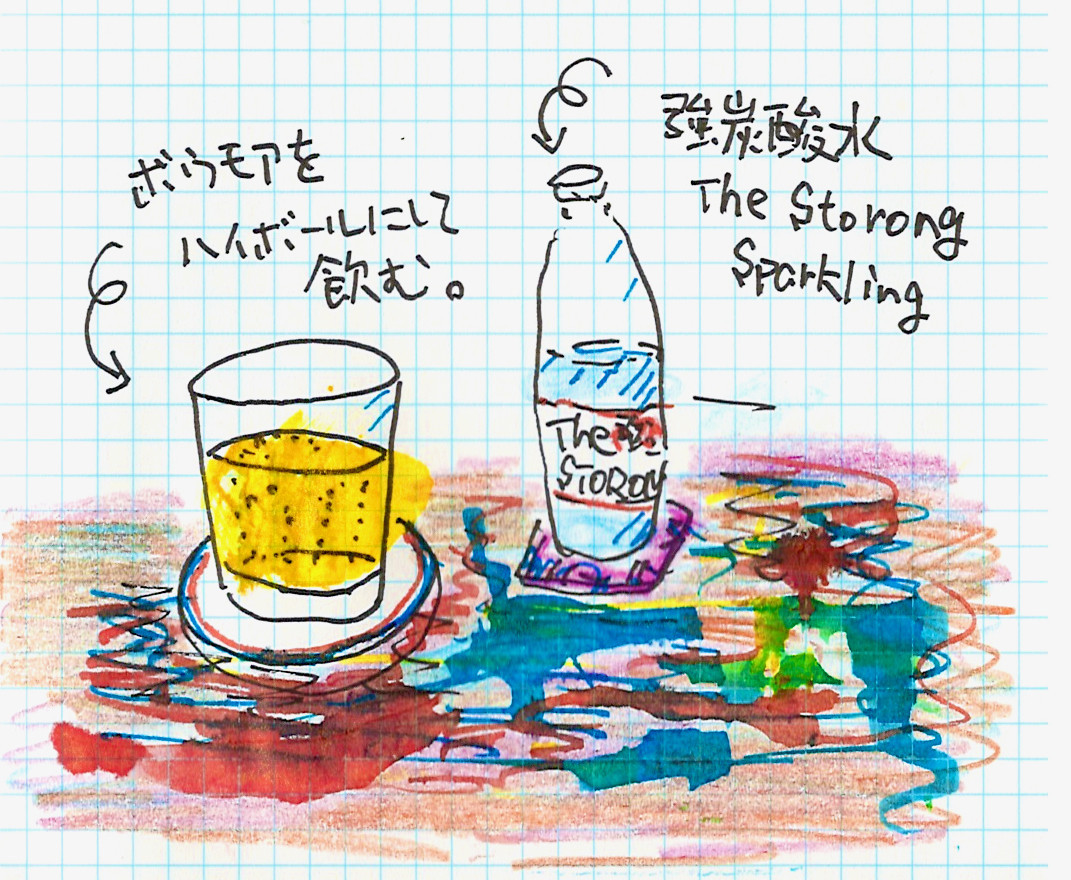 ボウモアを
ハイボールにして
飲む。
強炭酸水
The Storong
Sparkling
The
STORONG